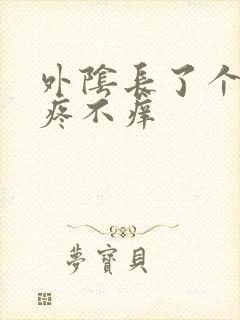 外陰長了个
疼不痒
夢寶貝